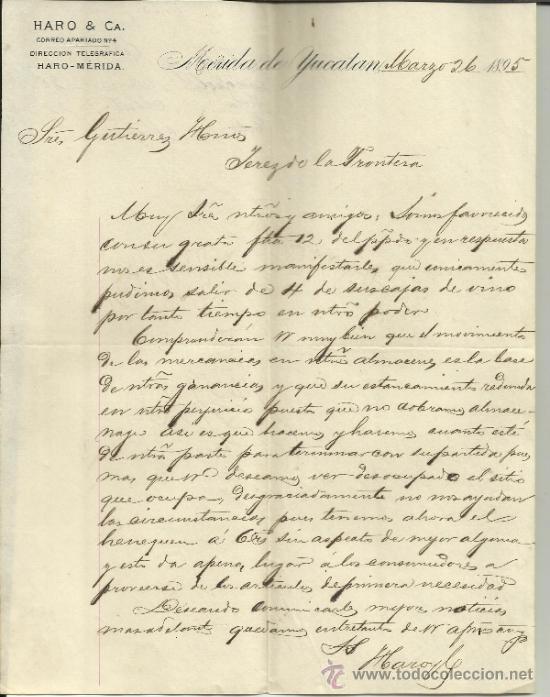 HARO & CA.
CORREO APARTADO Nº 4
DIRECCION TELEGRAFICA
HARO-MÉRIDA.
Mérida de Yucatan Marzo 26 1895
Sres Gutierrez Hnos
Jerez de la Frontera
Muy Sres ntros y amigos: Somos favorecidos
con su grata fha 12 del ppdo y en respuesta
nos es sensible manifestarles que unicamente
pudimos salir de 4 de sus cajas de vino
por tanto tiempo en ntro poder.
Comprenderán V muy bien que el movimiento
de las mercancias en ntros almacenes es la base
de ntras ganancias y que su estancamiento redunda
en ntro perjuicio puesto que no cobramos almace-
nage asi es que hacemos y haremos cuanto esté
de ntra parte para terminar con su partida pues
mas que V. deseamos ver desocupado el sitio
que ocupa, desgraciadamente no nos ayudan
las circunstancias pues tenemos ahora el
henequen á 6 rs sin aspecto de mejor alguna
y esto da apenas lugar a los consumidores a
proveerse de los articulos de primera necesidad
Deseando comunicarle mejores noticias
mas adelante quedamos entretanto de V afmos
Haro y Ca
todocoleccion.net